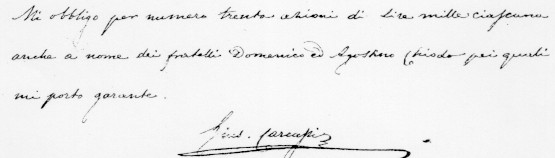 Mi obbligo per numero trenta azioni di Lire mille ciascuna
anche a nome dei fratelli Domenico ed Agostino Chiodo pei quali
mi porto garante.
Gius. Carcassi